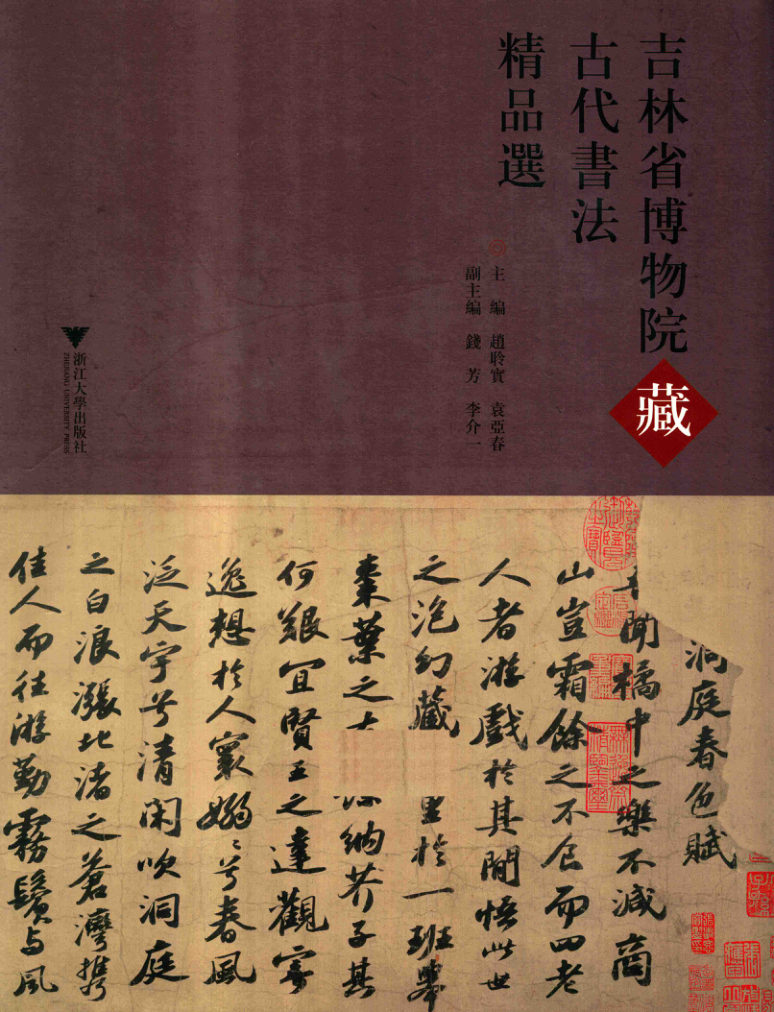 吉林省博物院
藏
古代書法
精品選
主編 趙聆實 袁亞春
副主編 錢芳 李介一
浙江大學出版社
ZHEJIANG UNIVERSITY PRESS
洞庭春色賦
聞橘中之樂不減商
山豈霜餘之不食而四老
人者游戲於其間悟此世
之泡幻藏里於一班舉
棗葉之納芥子其
何艱宜賢王之達觀寄
逸想於人寰嫋〻兮春風
泛天宇兮清閑吹洞庭
之白浪漲北渚之蒼灣攜
佳人而往游勤霧鬢与風